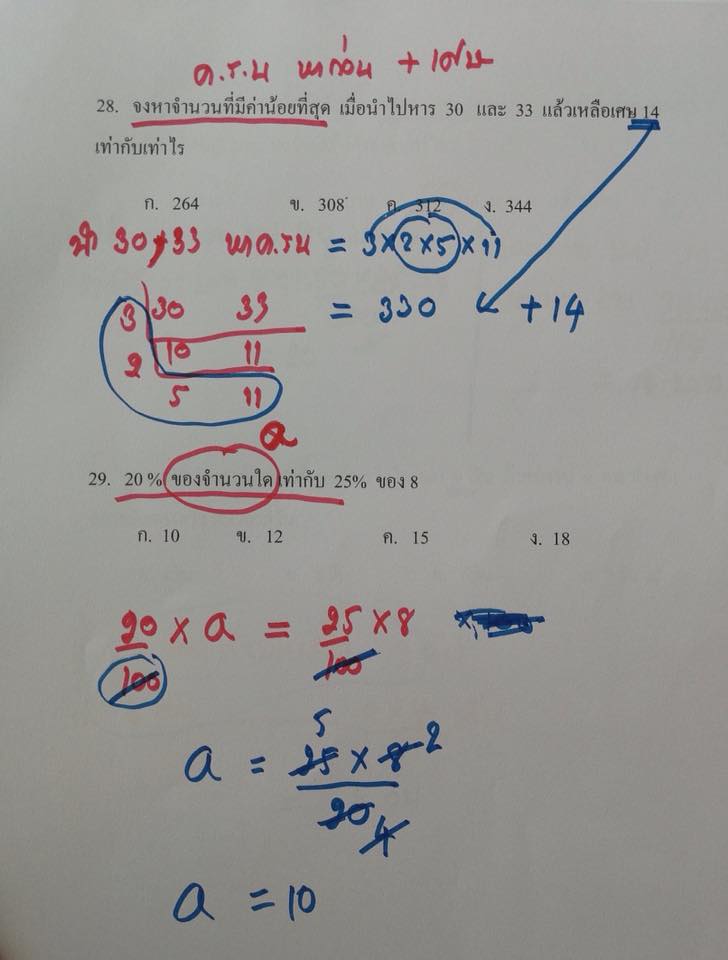 ค.ร.น หาก่อน + เศษ
28. จงหาจำนวนที่มีค่าน้อยที่สุด เมื่อนำไปหาร 30 และ 33 แล้วเหลือเศษ 14
เท่ากับเท่าไร
ก. 264 ข. 308 ค. 312 ง. 344
นำ 30, 33 หาค.ร.น = 3×2×5×11
3 30 33 = 330 + 14
2 10 11
5 11
a
29. 20 % ของจำนวนใด เท่ากับ 25% ของ 8
ก. 10 ข. 12 ค. 15 ง. 18
20 × a = 25 × 8
100 100
5
a = 25 × 8 2
20 4
a = 10